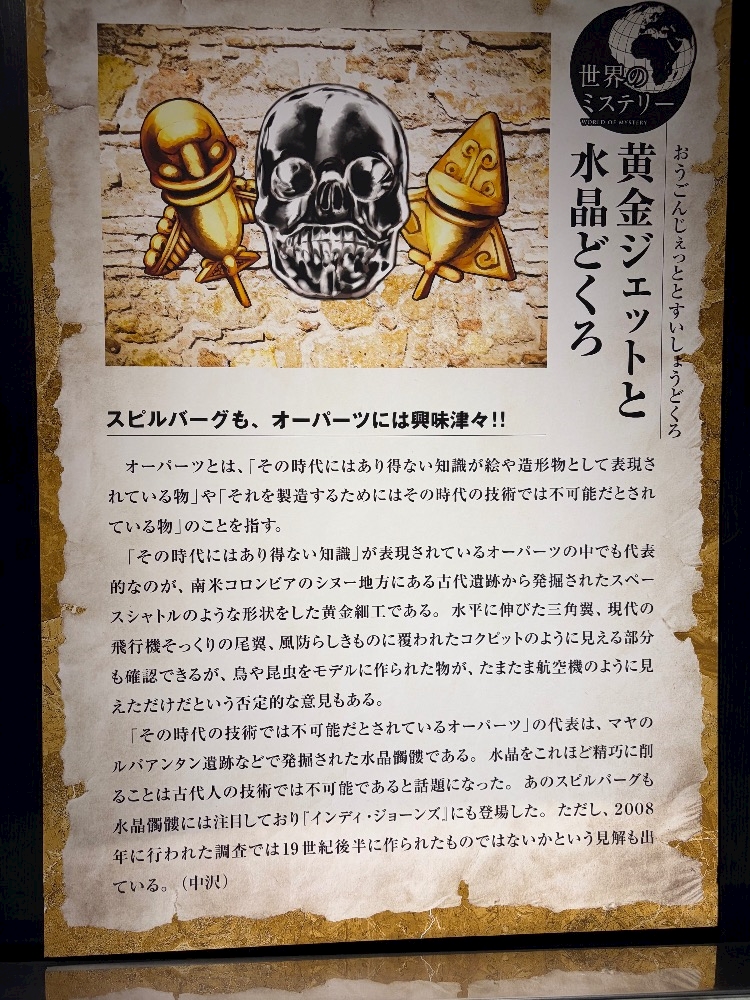 世界の
ミステリー
WORLD OF MYSTERY
おうごんじぇっととすいしょうどくろ
黄金ジェットと
水晶どくろ
スピルバーグも、オーパーツには興味津々!!
オーパーツとは、「その時代にはあり得ない知識が絵や造形物として表現さ
れている物」や「それを製造するためにはその時代の技術では不可能だとされ
ている物」のことを指す。
「その時代にはあり得ない知識」が表現されているオーパーツの中でも代表
的なのが、南米コロンビアのシヌー地方にある古代遺跡から発掘されたスペー
スシャトルのような形状をした黄金細工である。水平に伸びた三角翼、現代の
飛行機そっくりの尾翼、風防らしきものに覆われたコクピットのように見える部分
も確認できるが、鳥や昆虫をモデルに作られた物が、たまたま航空機のように見
えただけだという否定的な意見もある。
「その時代の技術では不可能だとされているオーパーツ」の代表は、マヤの
ルバアンタン遺跡などで発掘された水晶髑髏である。水晶をこれほど精巧に削
ることは古代人の技術では不可能であると話題になった。あのスピルバーグも
水晶髑髏には注目しており『インディ・ジョーンズ』にも登場した。ただし、2008
年に行われた調査では19世紀後半に作られたものではないかという見解も出
ている。（中沢）